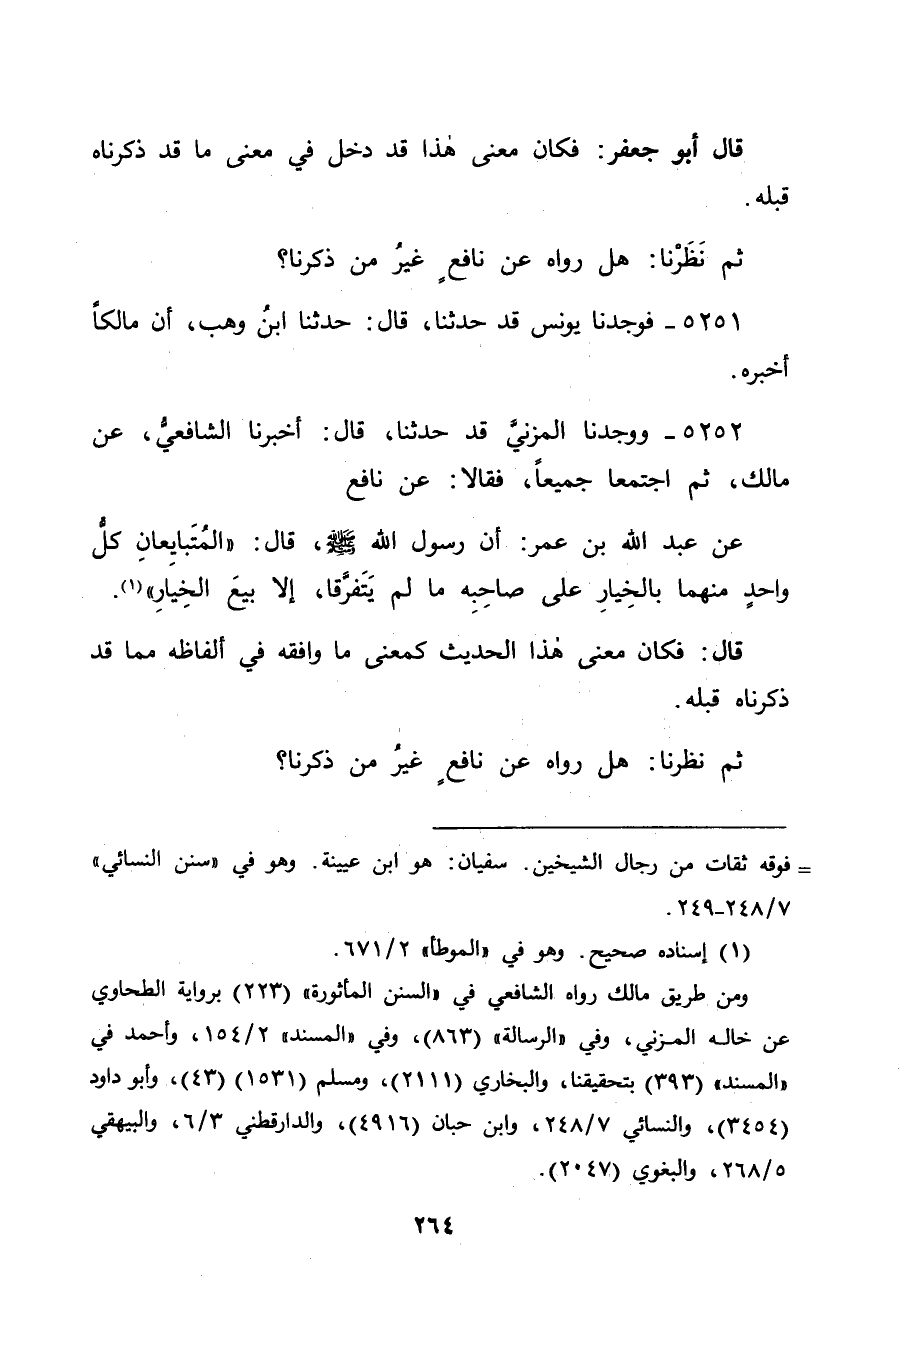 قال أبو جعفر: فكان معنى هٰذا قد دخل في معنى ما قد ذكرناه
قبله.
ثم نَظَرْنا: هل رواه عن نافعٍ غيرُ من ذكرنا؟
٥٢٥١ ـ فوجدنا يونس قد حدثنا، قال: حدثنا ابنُ وهب، أن مالكاً
أخبره.
٥٢٥٢ ـ ووجدنا المزنيَّ قد حدثنا، قال: أخبرنا الشافعيُّ، عن
مالك، ثم اجتمعا جميعاً، فقالا: عن نافع
عن عبد الله بن عمر: أن رسول الله ﷺ، قال: «المُتَبايعانِ كلُّ
واحدٍ منهما بالخِيارِ على صاحِبِه ما لم يَتَفرَّقا، إلا بيعَ الخِيارِ»(١).
قال: فكان معنى هٰذا الحديث كمعنى ما وافقه في ألفاظه مما قد
ذكرناه قبله.
ثم نظرنا: هل رواه عن نافعٍ غيرُ من ذكرنا؟
= فوقه ثقات من رجال الشيخين. سفيان: هو ابن عيينة. وهو في «سنن النسائي»
٢٤٨/٧ـ٢٤٩.
(١) إسناده صحيح. وهو في «الموطأ» ٦٧١/٢.
ومن طريق مالك رواه الشافعي في «السنن المأثورة» (٢٢٣) برواية الطحاوي
عن خاله المزني، وفي «الرسالة» (٨٦٣)، وفي «المسند» ١٥٤/٢، وأحمد في
«المسند» (٣٩٣) بتحقيقنا، والبخاري (٢١١١)، ومسلم (١٥٣١) (٤٣)، وأبو داود
(٣٤٥٤)، والنسائي ٢٤٨/٧، وابن حبان (٤٩١٦)، والدارقطني ٦/٣، والبيهقي
٢٦٨/٥، والبغوي (٢٠٤٧).
٢٦٤